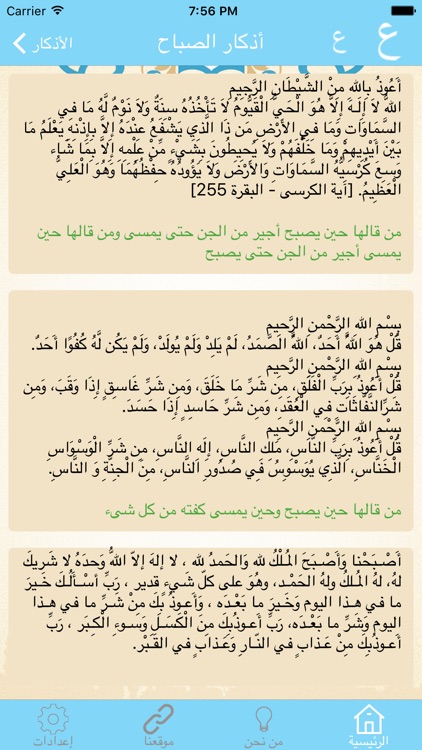 Carrier 7:56 PM
الأذكار
أذكار الصباح
ع ع
أَعُوذُ بِاللهِ مِنْ الشَّيْطَانِ الرَّجِيمِ
اللّهُ لاَ إِلَـهَ إِلاَّ هُوَ الْحَيُّ الْقَيُّومُ لاَ تَأْخُذُهُ سِنَةٌ وَلاَ نَوْمٌ لَّهُ مَا فِي
السَّمَاوَاتِ وَمَا فِي الأَرْضِ مَن ذَا الَّذِي يَشْفَعُ عِنْدَهُ إِلاَّ بِإِذْنِهِ يَعْلَمُ مَا
بَيْنَ أَيْدِيهِمْ وَمَا خَلْفَهُمْ وَلاَ يُحِيطُونَ بِشَيْءٍ مِّنْ عِلْمِهِ إِلاَّ بِمَا شَاء
وَسِعَ كُرْسِيُّهُ السَّمَاوَاتِ وَالأَرْضَ وَلاَ يَؤُودُهُ حِفْظُهُمَا وَهُوَ الْعَلِيُّ
الْعَظِيمُ. [آية الكرسى - البقرة 255]
من قالها حين يصبح أجير من الجن حتى يمسى ومن قالها حين
يمسى أجير من الجن حتى يصبح
بِسْمِ اللهِ الرَّحْمنِ الرَّحِيم
قُلْ هُوَ اللَّهُ أَحَدٌ، اللَّهُ الصَّمَدُ، لَمْ يَلِدْ وَلَمْ يُولَدْ، وَلَمْ يَكُن لَّهُ كُفُوًا أَحَدٌ.
بِسْمِ اللهِ الرَّحْمنِ الرَّحِيم
قُلْ أَعُوذُ بِرَبِّ الْفَلَقِ، مِن شَرِّ مَا خَلَقَ، وَمِن شَرِّ غَاسِقٍ إِذَا وَقَبَ، وَمِن
شَرِّ النَّفَّاثَاتِ فِي الْعُقَدِ، وَمِن شَرِّ حَاسِدٍ إِذَا حَسَدَ.
بِسْمِ اللهِ الرَّحْمنِ الرَّحِيم
قُلْ أَعُوذُ بِرَبِّ النَّاسِ، مَلِكِ النَّاسِ، إِلَهِ النَّاسِ، مِن شَرِّ الْوَسْوَاسِ
الْخَنَّاسِ، الَّذِي يُوَسْوِسُ فِي صُدُورِ النَّاسِ، مِنَ الْجِنَّةِ وَ النَّاسِ.
من قالها حين يصبح وحين يمسى كفته من كل شىء
أَصْـبَحْنا وَأَصْـبَحَ المُـلْكُ لله وَالحَمدُ لله ، لا إلهَ إلاّ اللّهُ وَحدَهُ لا شَريكَ
لهُ، لهُ المُـلكُ ولهُ الحَمْـد، وهُوَ على كلّ شَيءٍ قدير ، رَبِّ أسْـأَلُـكَ خَـيرَ
ما في هـذا اليوم وَخَـيرَ ما بَعْـدَه ، وَأَعـوذُ بِكَ مِنْ شَـرِّ ما في هـذا
اليوم وَشَرِّ ما بَعْـدَه، رَبِّ أَعـوذُبِكَ مِنَ الْكَسَـلِ وَسـوءِ الْكِـبَر ، رَبِّ
أَعـوذُبِكَ مِنْ عَـذابٍ في النّـارِ وَعَـذابٍ في القَـبْر.
الرئيسية
من نحن
موقعنا
إعدادات